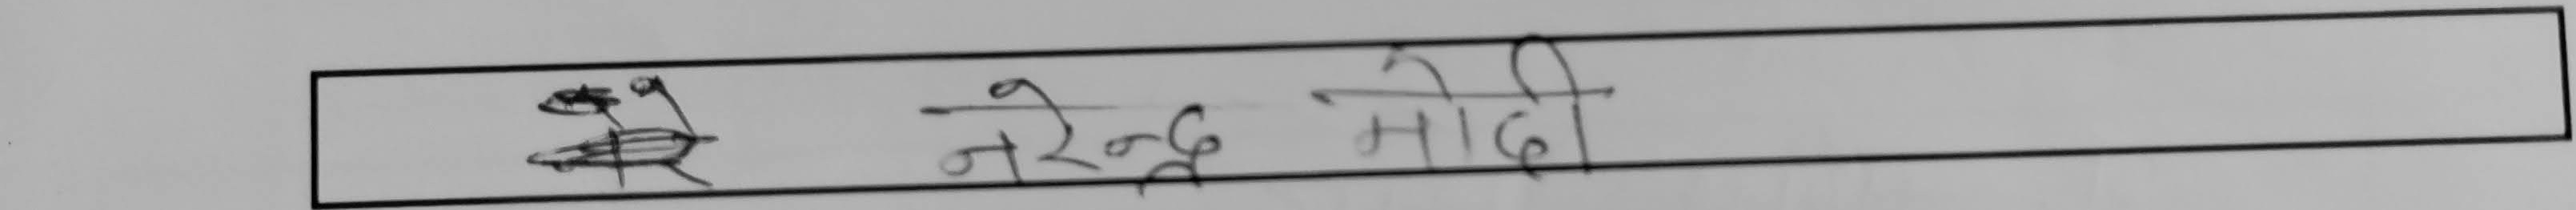 नरेन्द्र मोदी